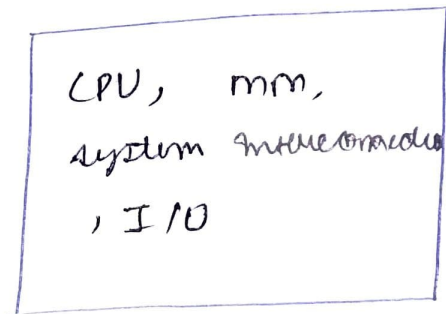 CPU, mm,
system interconnection
, I/O